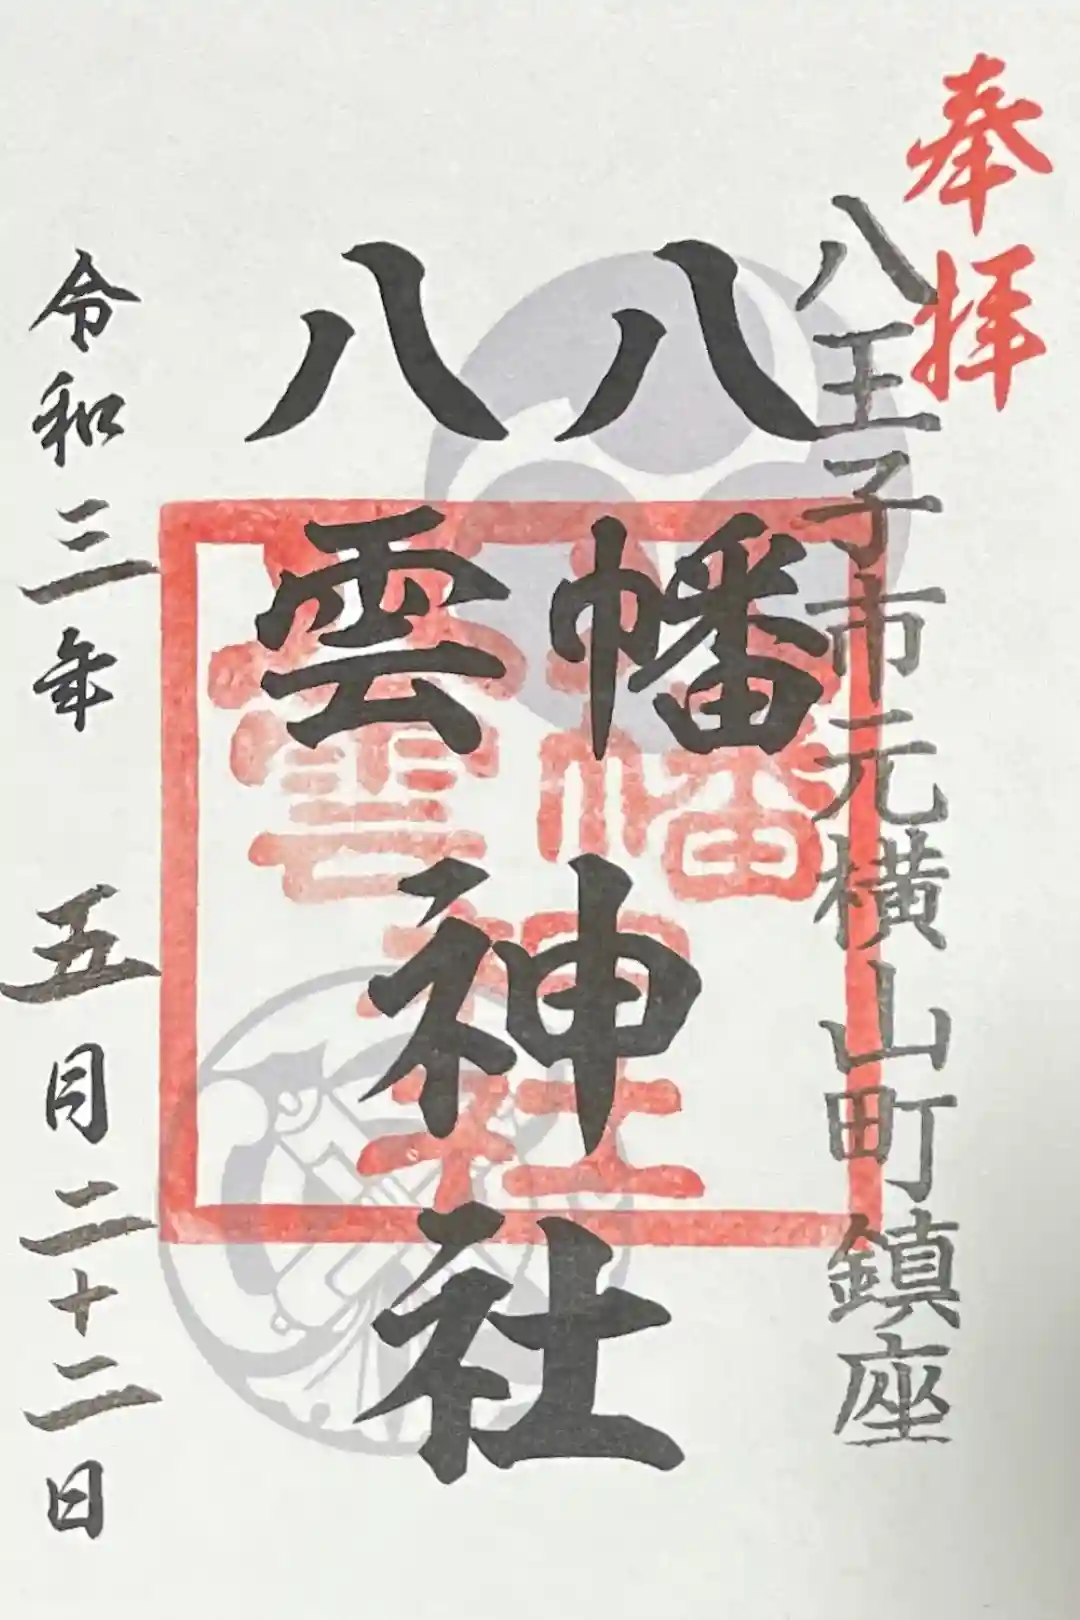 奉拝
八王子市元横山町鎮座
八幡
八雲
神社
令和三年 五月二十二日
八幡
八雲
神社